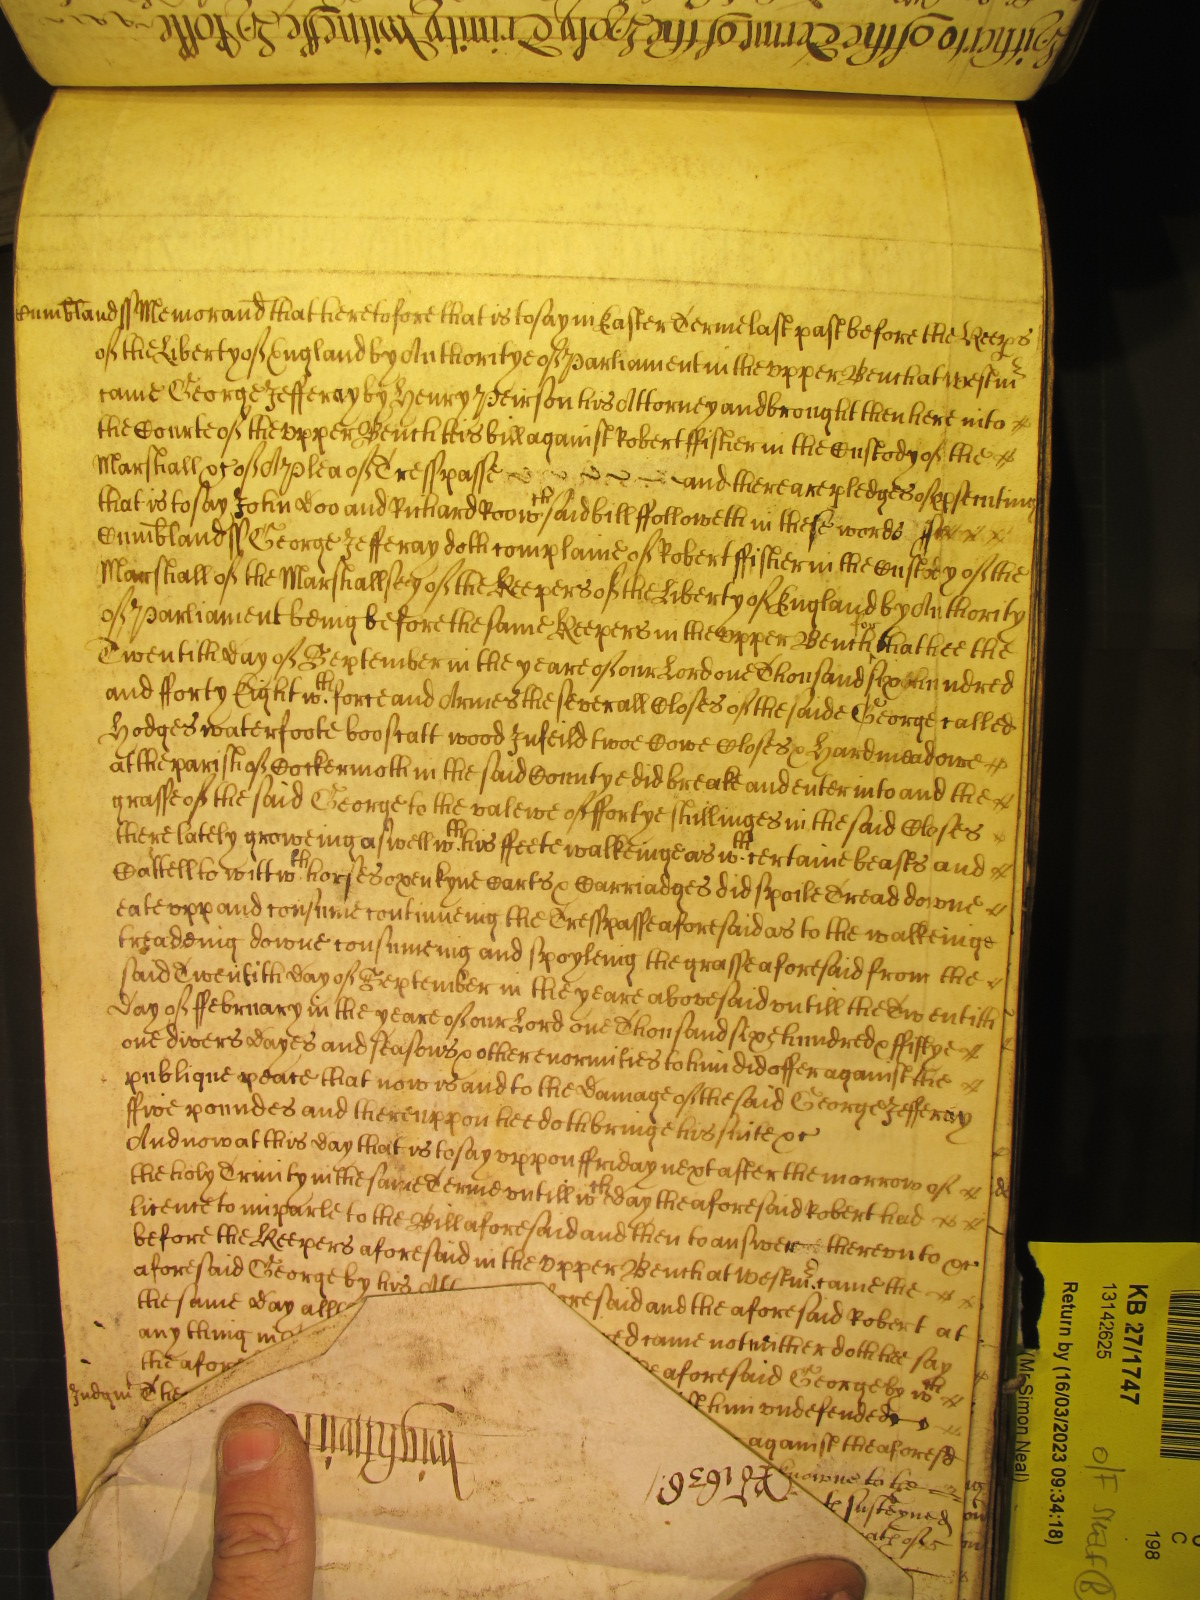 Hitherto of the Terme of the Holy Trinity Witnesse H Rolle
Cumbland ss Memorand that heretofore that is to say in Easter Terme last past before the Keeps
of the Liberty of England by Authoritye of Parliament in the upper Bench at Westm
came George Jefferay by Henry Peirson his Attorney and brought then here into
the Courte of the upper Bench his bill against Robert ffisher in the Custody of the
Marshall &c of A Plea of Tresspasse and there are pledges of psecuting
that is to say John Doo and Richard Roo wch said bill ffolloweth in these words ss
Cumbland ss George Jefferay doth complaine of Robert ffisher in the Custody of the
Marshall of the Marshallsey of the Keepers of the Liberty of England by Authority
of Parliament being before the same Keepers in the upper Bench for that hee the
Twentith day of September in the yeare of our Lord one Thousand six hundred
and fforty Eight wth force and Armes the severall Closes of the saide George called
Hodges waterfoote booscatt wood Infeild twoe Cowe Closes & Hard meadowe
at the parish of Cockermoth in the said Countye did breake and enter into and the
grasse of the said George to the valewe of ffortye shillinges in the said Closes
there lately groweing aswell wth his ffeete walkeinge as wth certaine beasts and
Cattell to witt wth horses oxen kyne Carts & Carriadges did spoile Tread downe
eate upp and consume continueing the Tresspasse aforesaid as to the walkeinge
treadeing downe consumeing and spoyleing the grasse aforesaid from the
said Twentith day of September in the yeare abovesaid untill the Twentith
day of ffebruary in the yeare of our Lord one Thousand sixe hundred & ffiftye
one divers dayes and seasons & other enormities to him did offer against the
publique peace that now is and to the damage of the said George Jefferay
ffive poundes and thereuppon hee doth bringe his suite &c
And now at this day that is to say uppon ffriday next after the morrow of
the holy Trinity in the same Terme untill wch day the aforesaid Robert had
licence to imparle to the Bill aforesaid and then to answer thereunto &c
before the Keepers aforesaid in the upper Bench at Westm came the
aforesaid George by his Att aforesaid and the aforesaid Robert at
the same day all came not neither doth hee say
any thing in aforesaid George by wch
the afore him undefended
Judgm The against the aforesd
knowne to the
susteyned
Rd 1636
KB 27/1747
13142625
Return by (16/03/2023 09:34:18)
(Mr Simon Neal)
198
C
O/F